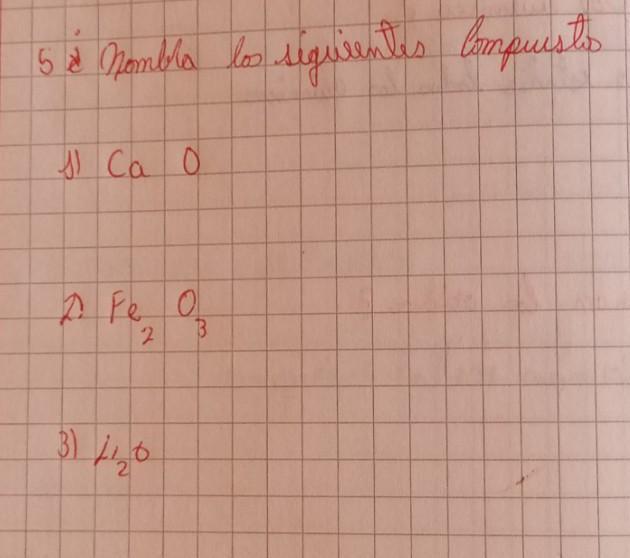 5 Nombla los siguientes Compuesto
1) Ca O
2) Fe₂ O₃
3) Li₂O